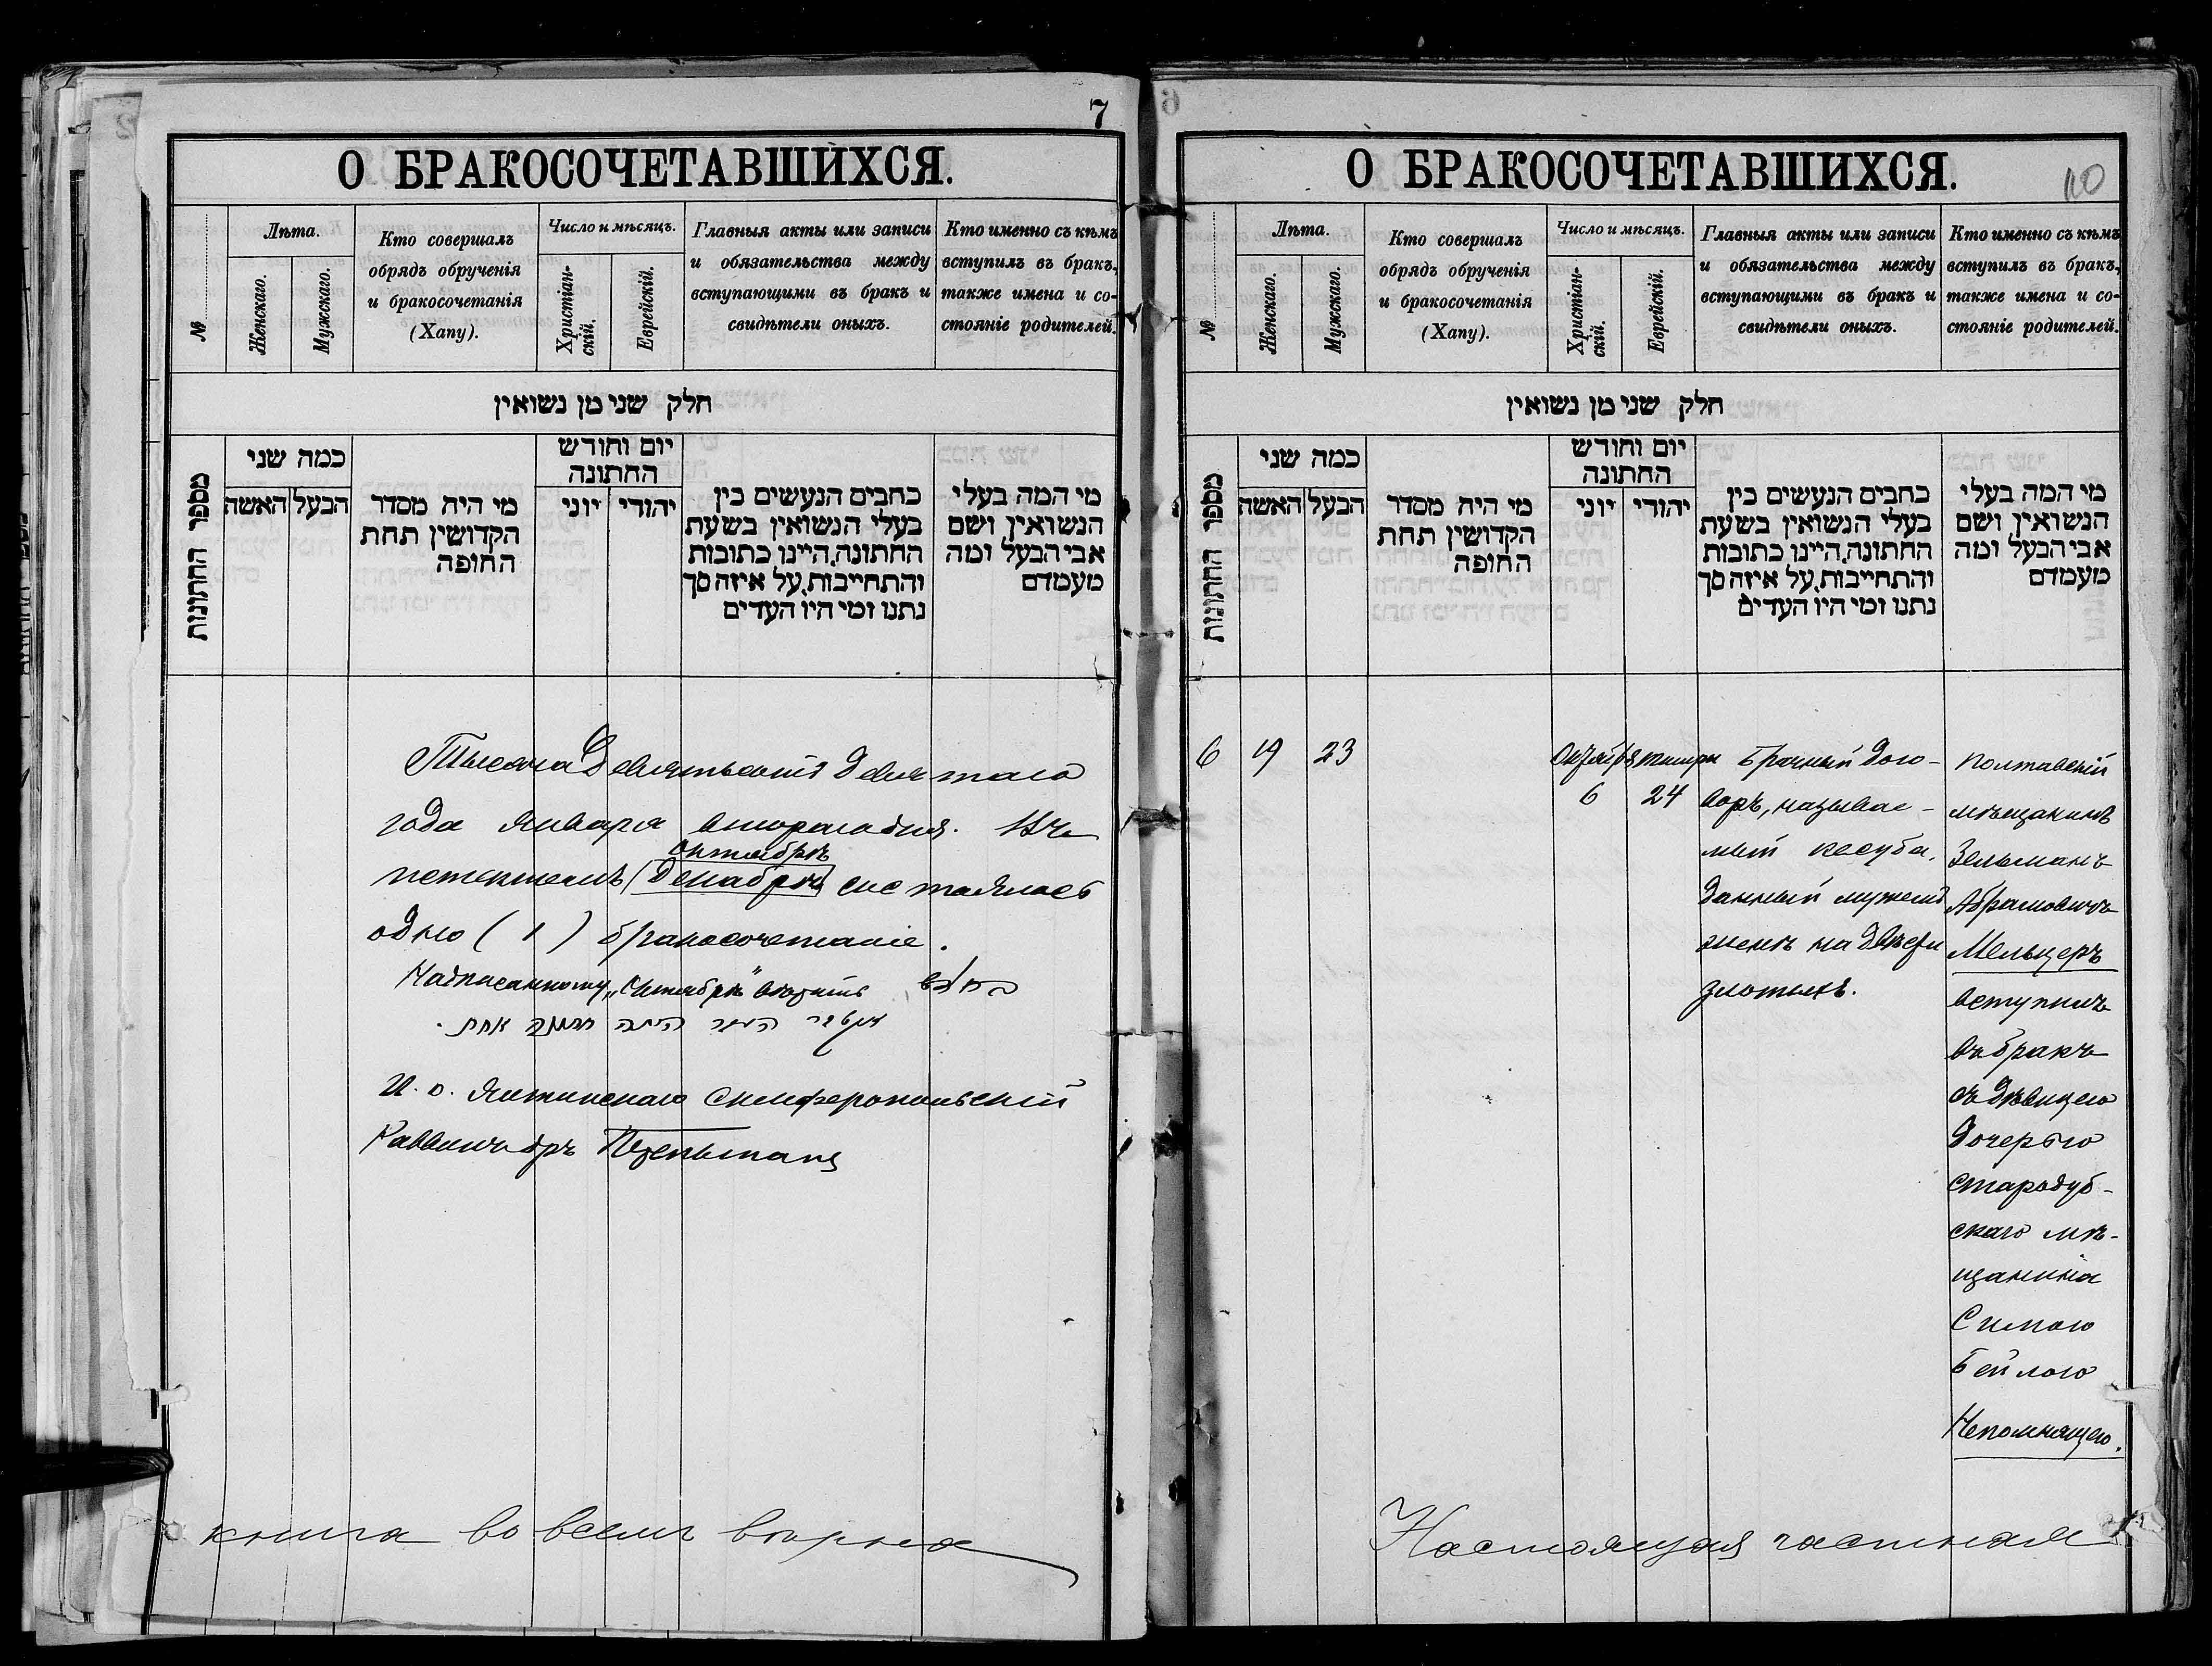 7
О БРАКОСОЧЕТАВШИХСЯ.
№
Лѣта.
Женскаго.
Мужскаго.
Кто совершалъ
обрядъ обрученія
и бракосочетанія
(Хапу).
Число и мѣсяцъ.
Христіан-
скій.
Еврейскій.
Главныя акты или записи
и обязательства между
вступающими въ бракъ и
свидѣтели оныхъ.
Кто именно съ кѣмъ
вступилъ въ бракъ,
также имена и со-
стояніе родителей.
חלק שני מן נשואין
מספר החתונות
כמה שני
הבעל האשה
מי היה מסדר
הקדושין תחת
החופה
יום וחודש
החתונה
יהודי יוני
כתבים הנעשים בין
בעלי הנשואין בשעת
החתונה, היינו כתובות
והתחייבות, על איזה סך
נתנו ומי היו העדים
מי המה בעלי
הנשואין ושם
אבי הבעל ומה
מעמדם
Тысяча Девятьсотъ девятаго
года Января второго дня. Въ
октябрѣ
истекшемъ Декабрѣ состоялось
одно (1) бракосочетаніе.
Надписанному „Октябрѣ" вѣрить
היתה חתונה אחת.
И. о. Ялтинскаго Симферопольскій
Раввинъ
книга во всемъ вѣрна
6
О БРАКОСОЧЕТАВШИХСЯ.
110
№
Лѣта.
Женскаго.
Мужскаго.
Кто совершалъ
обрядъ обрученія
и бракосочетанія
(Хапу).
Число и мѣсяцъ.
Христіан-
скій.
Еврейскій.
Главныя акты или записи
и обязательства между
вступающими въ бракъ и
свидѣтели оныхъ.
Кто именно съ кѣмъ
вступилъ въ бракъ,
также имена и со-
стояніе родителей.
חלק שני מן נשואין
מספר החתונות
כמה שני
הבעל האשה
מי היה מסדר
הקדושין תחת
החופה
יום וחודש
החתונה
יהודי יוני
כתבים הנעשים בין
בעלי הנשואין בשעת
החתונה, היינו כתובות
והתחייבות, על איזה סך
נתנו ומי היו העדים
מי המה בעלי
הנשואין ושם
אבי הבעל ומה
מעמדם
6 19 23
Октября
6
тишри
24
Брачный дого-
воръ, называе-
мый кесуба,
данный мужемъ
женѣ на двѣсти
злотыхъ.
Полтавскій
мѣщанинъ
Зельманъ
Абрамовичъ
Мельцеръ
вступилъ
въ бракъ
съ дѣвицею
дочерью
стародуб-
скаго мѣ-
щанина
Симою
Бейлою
Непомнящею.
Настоящая частная